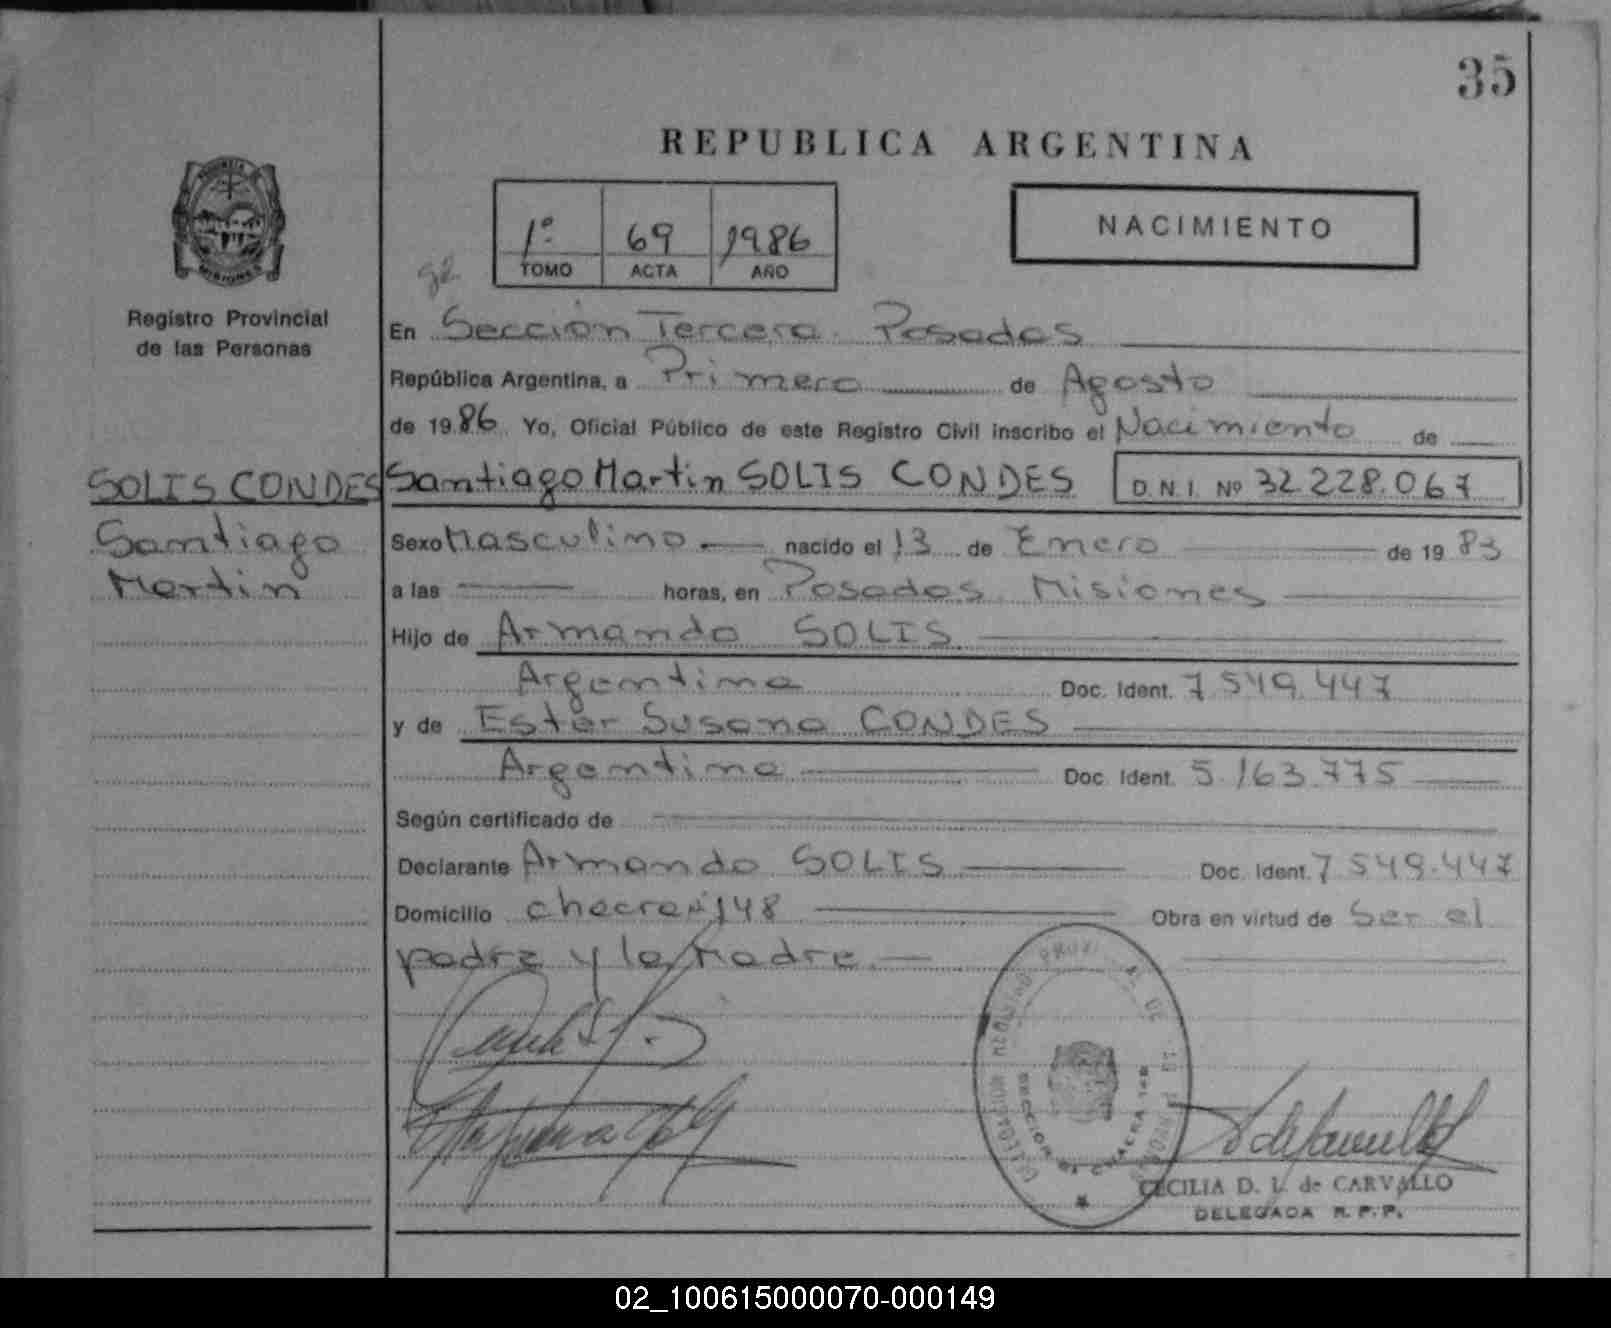 35
REPUBLICA ARGENTINA
NACIMIENTO
1º 69 1986
TOMO ACTA AÑO
PROVINCIA
MISIONES
Registro Provincial
de las Personas
En Sección Tercera Posadas
República Argentina, a Primero de Agosto
de 1986 Yo, Oficial Público de este Registro Civil inscribo el Nacimiento de
SOLIS CONDES
Santiago
Martin
Santiago Martin SOLIS CONDES D.N.I. Nº 32.228.067
Sexo Masculino nacido el 13 de Enero de 19 83
a las horas, en Posadas Misiones
Hijo de Armando SOLIS
Argentina Doc. Ident. 7.549.447
y de Ester Susana CONDES
Argentina Doc. Ident. 5.163.775
Según certificado de
Declarante Armando SOLIS Doc. Ident. 7.549.447
Domicilio chacra 148 Obra en virtud de Ser el
padre y la Madre.
CECILIA D. L. de CARVALLO
DELEGADA R.P.P.
02_100615000070-000149